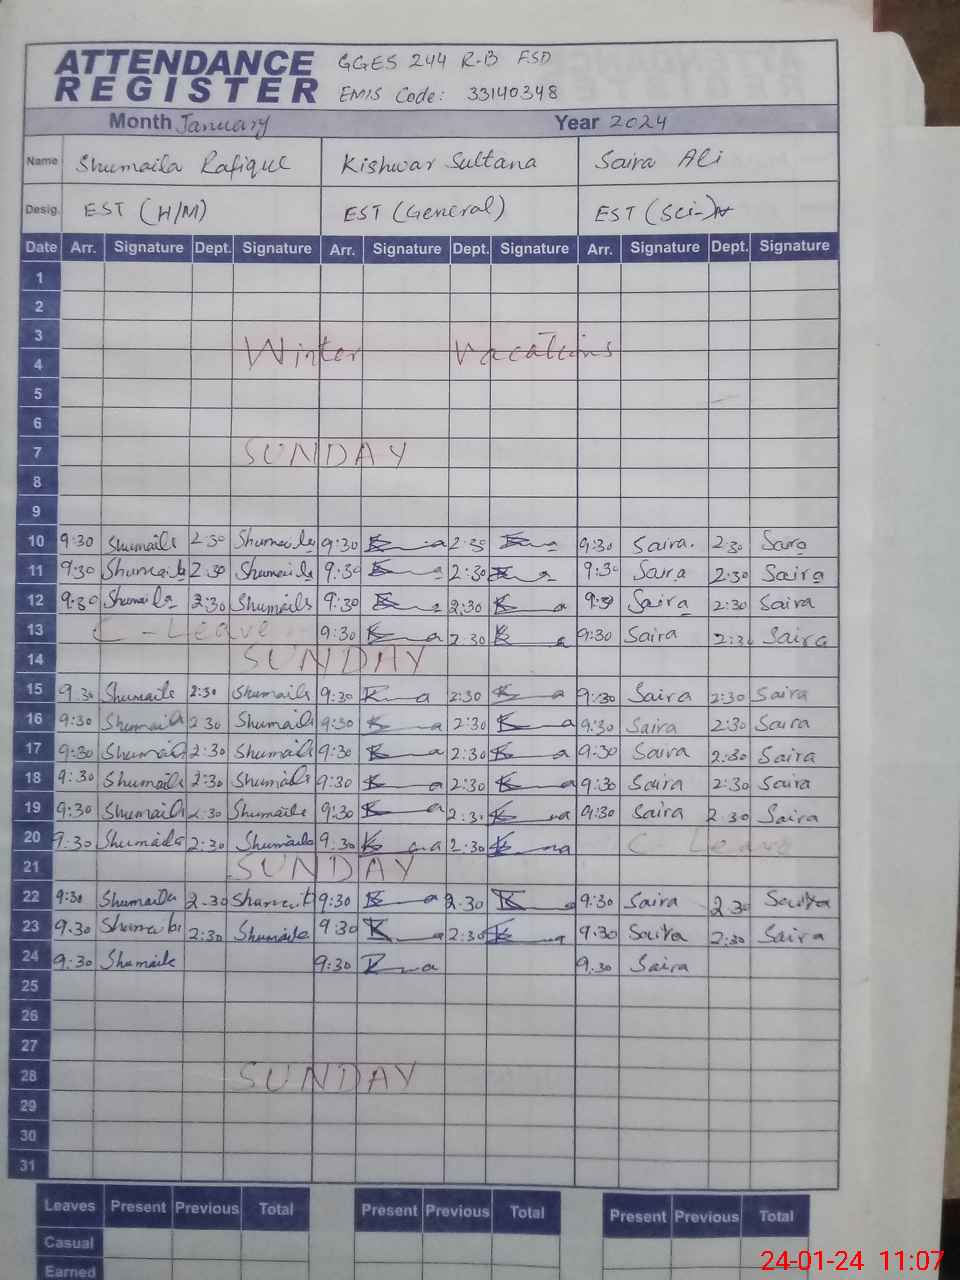 ATTENDANCE REGISTER GGES 244 R-B FSD
EMIS Code: 33140348
Month January Year 2024
Name Shumaila Rafique Kishwar Sultana Saira Ali
Desig. EST (H/M) EST (General) EST (Sci-)
Date Arr. Signature Dept. Signature Arr. Signature Dept. Signature Arr. Signature Dept. Signature
1
2
3
Winter Vacations
4
5
6
7 SUNDAY
8
9
10 9:30 Shumaila 2:30 Shumaila 9:30 2:30 9:30 Saira. 2:30 Saira
11 9:30 Shumaila 2:30 Shumaila 9:30 2:30 9:30 Saira 2:30 Saira
12 9:30 Shumaila 2:30 Shumaila 9:30 2:30 9:30 Saira 2:30 Saira
13 C-Leave 9:30 2:30 9:30 Saira 2:30 Saira
14 SUNDAY
15 9:30 Shumaila 2:30 Shumaila 9:30 2:30 9:30 Saira 2:30 Saira
16 9:30 Shumaila 2:30 Shumaila 9:30 2:30 9:30 Saira 2:30 Saira
17 9:30 Shumaila 2:30 Shumaila 9:30 2:30 9:30 Saira 2:30 Saira
18 9:30 Shumaila 2:30 Shumaila 9:30 2:30 9:30 Saira 2:30 Saira
19 9:30 Shumaila 2:30 Shumaila 9:30 2:30 9:30 Saira 2:30 Saira
20 9:30 Shumaila 2:30 Shumaila 9:30 2:30 C-Leave
21 SUNDAY
22 9:30 Shumaila 2:30 9:30 2:30 9:30 Saira 2:30 Saira
23 9:30 Shumaila 2:30 Shumaila 9:30 2:30 9:30 Saira 2:30 Saira
24 9:30 Shumaila 9:30 9:30 Saira
25
26
27
28 SUNDAY
29
30
31
Leaves Present Previous Total Present Previous Total Present Previous Total
Casual
Earned
24-01-24 11:07